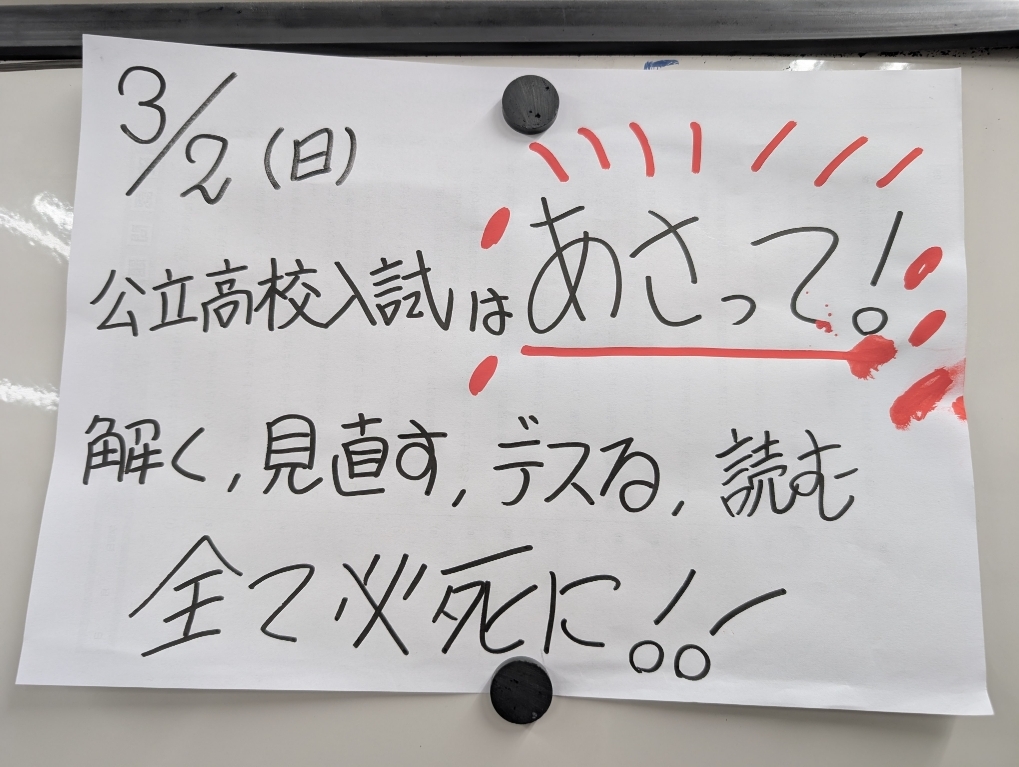 3/2(日)
公立高校入試はあさって!
解く,見直す,デスる,読む
全て必死に!!